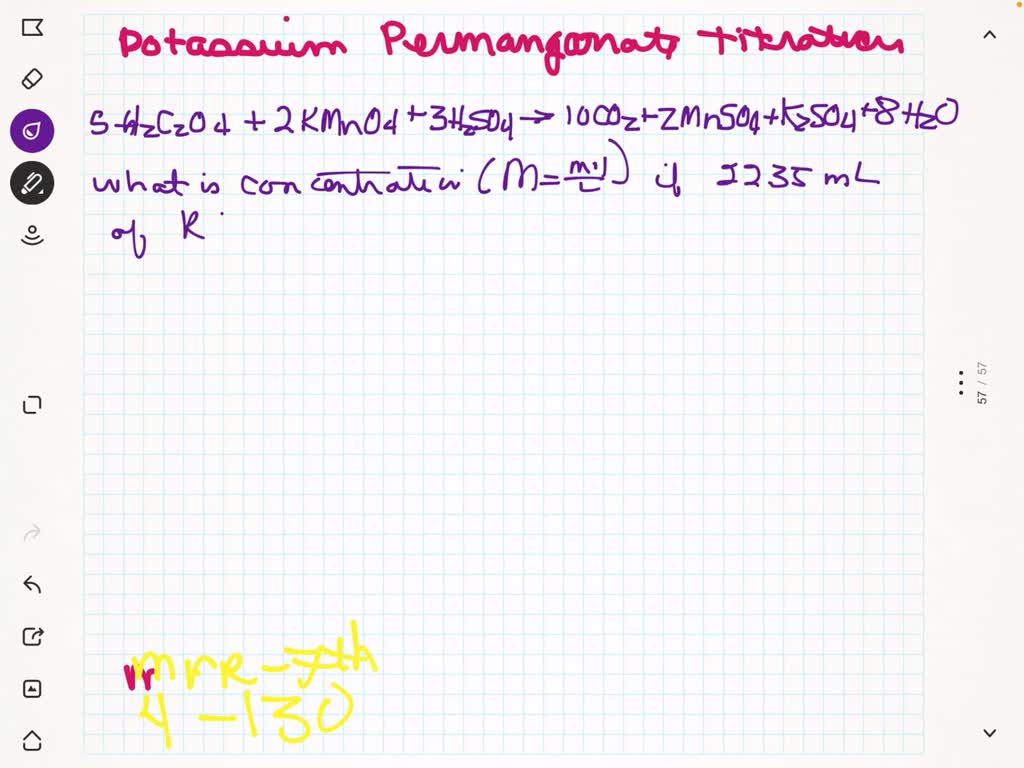 Potassium Permanganate titration
5 H2C2O4 + 2 KMnO4 + 3H2SO4 → 10CO2 + 2MnSO4 + K2SO4 + 8 H2O
what is concentration (M = mol/L) if 2235 mL
of K
4 - 130
57 / 57